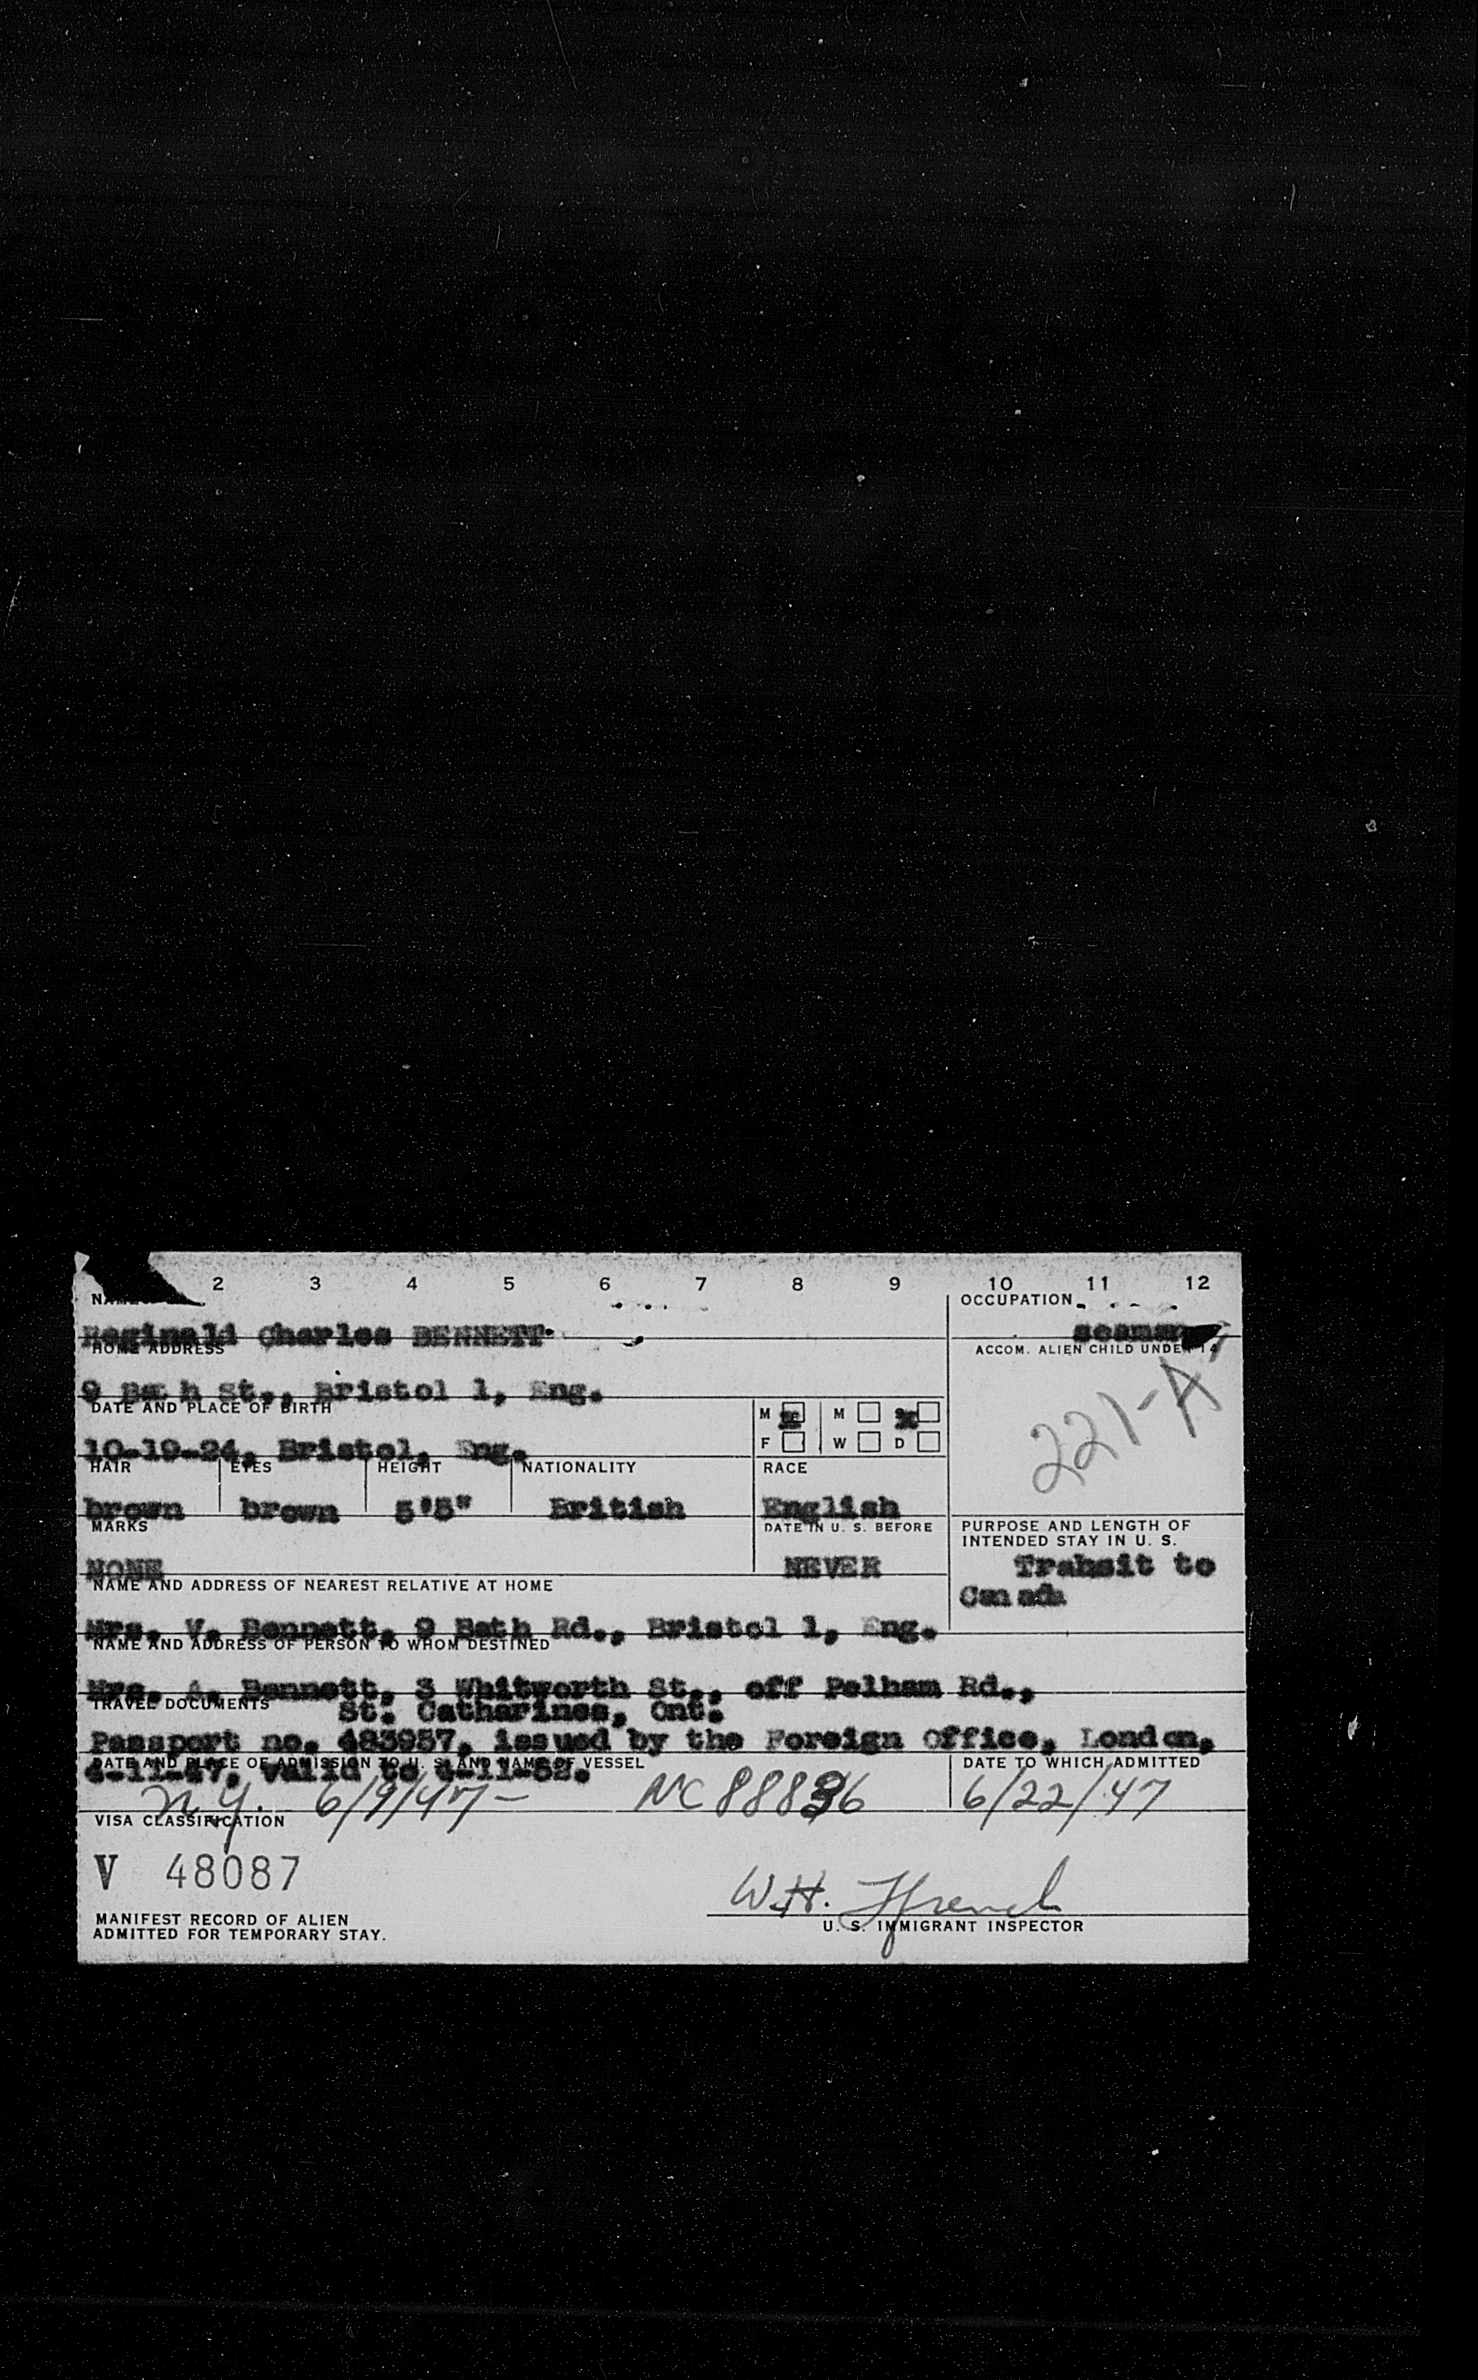 2 3 4 5 6 7 8 9 10 11 12
OCCUPATION
Reginald Charles BENNETT
seaman
HOME ADDRESS
ACCOM. ALIEN CHILD UNDER 14
9 Bath St., Bristol 1, Eng.
DATE AND PLACE OF BIRTH
M M S
221-A
F W D
10-19-24, Bristol, Eng.
HAIR EYES HEIGHT NATIONALITY RACE
brown brown 5'5" British English
MARKS
DATE IN U. S. BEFORE
PURPOSE AND LENGTH OF
INTENDED STAY IN U. S.
NONE NEVER Transit to
Canada
NAME AND ADDRESS OF NEAREST RELATIVE AT HOME
Mrs. V. Bennett, 9 Bath Rd., Bristol 1, Eng.
NAME AND ADDRESS OF PERSON TO WHOM DESTINED
Mrs. A. Bennett, 3 Whitworth St., off Pelham Rd.,
TRAVEL DOCUMENTS
St. Catharines, Ont.
Passport no. 483957, issued by the Foreign Office, London,
DATE AND PLACE OF ADMISSION TO U. S. AND NAME OF VESSEL
DATE TO WHICH ADMITTED
4-11-47, valid to 4-11-52.
N.Y. 6/9/47- NC 88836 6/22/47
VISA CLASSIFICATION
V 48087
W.H. Ffrench
MANIFEST RECORD OF ALIEN
ADMITTED FOR TEMPORARY STAY.
U. S. IMMIGRANT INSPECTOR